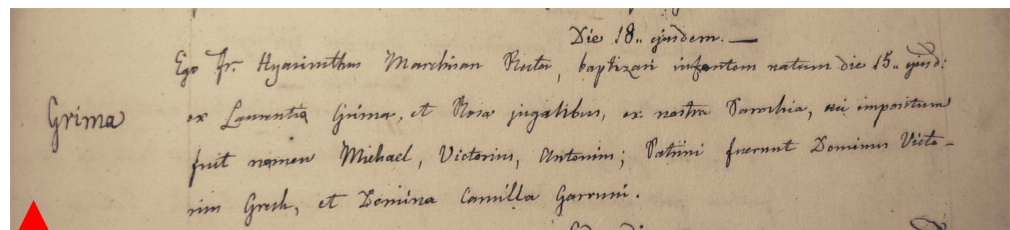 Die 18.. ejusdem. —
Ego Fr. Hyacinthus Marchisan Rector, baptizavi infantem natum die 15.. ejusd:
Grima
ex Laurentio Grima, et Rosa jugalibus, ex nostra Parochia, cui impositum
fuit nomen Michael, Victorius, Antonius; Patrini fuerunt Dominus Victo-
rius Grech, et Domina Camilla